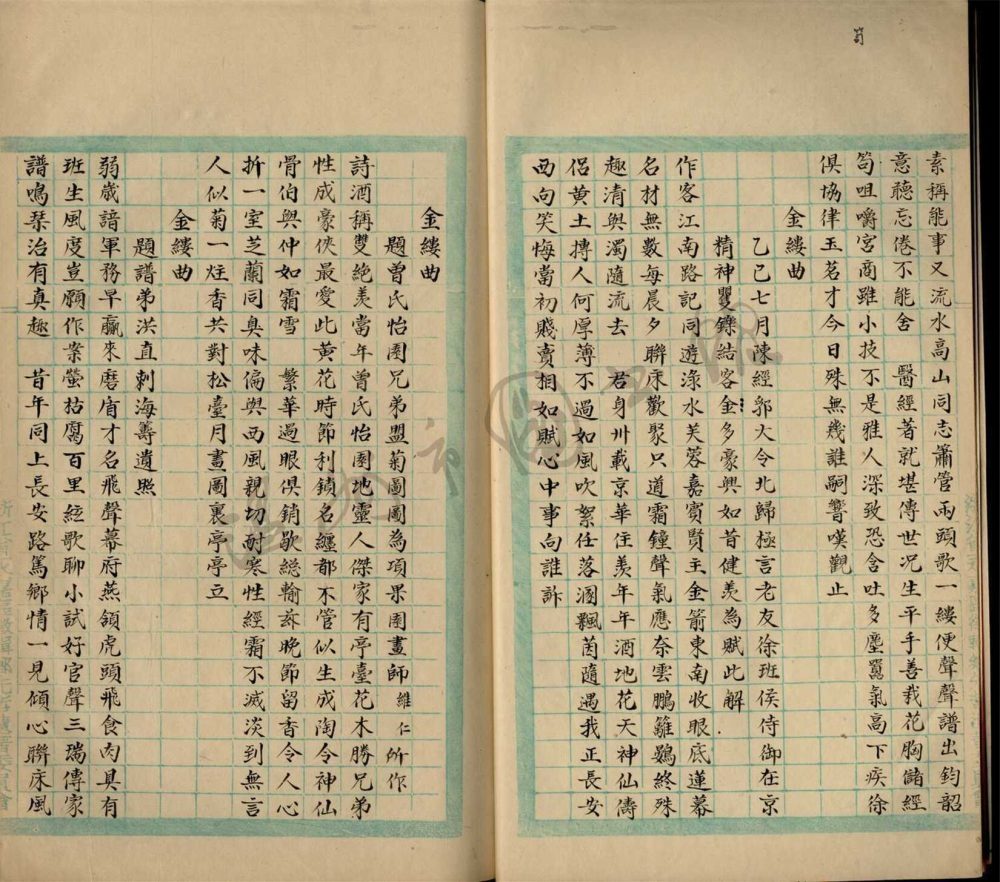 素稱能事又流水高山同志簫管兩頭歌一縷便聲聲譜出鈞韶
意聽忘倦不能舍　醫經著就堪傳世况生平手善栽花胸儲經
笥咀嚼宮商雖小技不是雅人深致恐含吐多塵嚣氣高下疾徐
俱協律玉茗才今日殊無幾誰嗣響嘆觀止
金縷曲
乙巳七月陳經郛大令北歸極言老友徐班侯侍御在京
精神矍鑠結客金多豪興如昔健羨為賦此解
作客江南路記同遊淥水芙蓉嘉賓賢主金箭東南收眼底蓮幕
名材無數每晨夕聯床歡聚只道霜鐘聲氣應奈雲鵬籬鷃終殊
趣清與濁隨流去　君身卅載京華住羨年年酒地花天神仙儔
侶黄土摶人何厚薄不過如風吹絮任落溷飄茵隨遇我正長安
西向笑悔當初賤賣相如賦心中事向誰訴
金縷曲
題曾氏怡園兄弟盟菊圖圖為項果園畫師維仁所作
詩酒稱雙絶羨當年曾氏怡園地靈人傑家有亭臺花木勝兄弟
性成豪俠最愛此黄花時節利鎖名韁都不管似生成陶令神仙
骨伯與仲如霜雪　繁華過眼俱銷歇總輸茲晚節留香令人心
折一室芝蘭同臭味偏與西風親切耐寒性經霜不滅淡到無言
人似菊一炷香共對松臺月畫圖裏亭亭立
金縷曲
題譜弟洪直刺海籌遺照
弱歳諳軍務早贏來磨盾才名飛聲幕府燕頷虎頭飛食肉具有
班生風度豈願作案螢枯腐百里絃歌聊小試好官聲三瑞傳家
譜鳴琹治有真趣　昔年同上長安路篤鄉情一見傾心聨床風